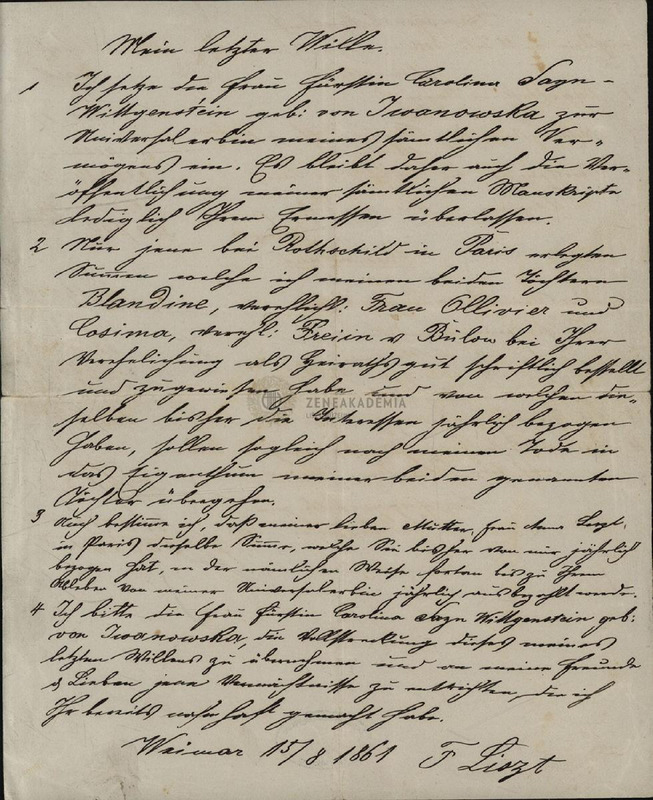 Mein letzter Wille.
1 Ich setze die Frau Fürstin Carolina Sayn-
Wittgenstein geb: von Iwanowska zur
Universalerbin meines sämtlichen Ver-
mögens ein. Es bleibt daher auch die Ver-
öffentlichung meiner sämtlichen Manskripte
lediglich Ihrem Ermessen überlassen.
2 Nur jene bei Rothschild in Paris erlegten
Summen welche ich meinen beiden Töchtern
Blandine, verehlicht: Frau Ollivier und
Cosima, verehl: Freiin v Bülow bei Ihrer
Verehelichung als Heirathsgut schriftlich bestellt
und zugewiesen habe und von welchen die-
selben bisher die Interessen jährlich bezogen
haben, sollen sogleich nach meinem Tode in
das Eigenthum meiner beiden genannten
Töchter übergehen.
3 Auch bestimme ich, daß meiner lieben Mutter, Frau Anna Liszt,
in Paris dieselbe Summe, welche Sie bisher von mir jährlich
bezogen hat, in der nämlichen Weise fortan bis zu Ihrem
Ableben von meiner Universalerbin jährlich ausbezahlt werde.
4 Ich bitte die Frau Fürstin Carolina Sayn Wittgenstein geb:
von Iwanowska, die Vollstreckung dieses meines
letzten Willens zu übernehmen und an meine Freunde
& Lieben jene Vermächtnisse zu entrichten, die ich
Ihr bereits namhaft gemacht habe.
Weimar 15/8 1861 F Liszt
ZENEAKADEMIA